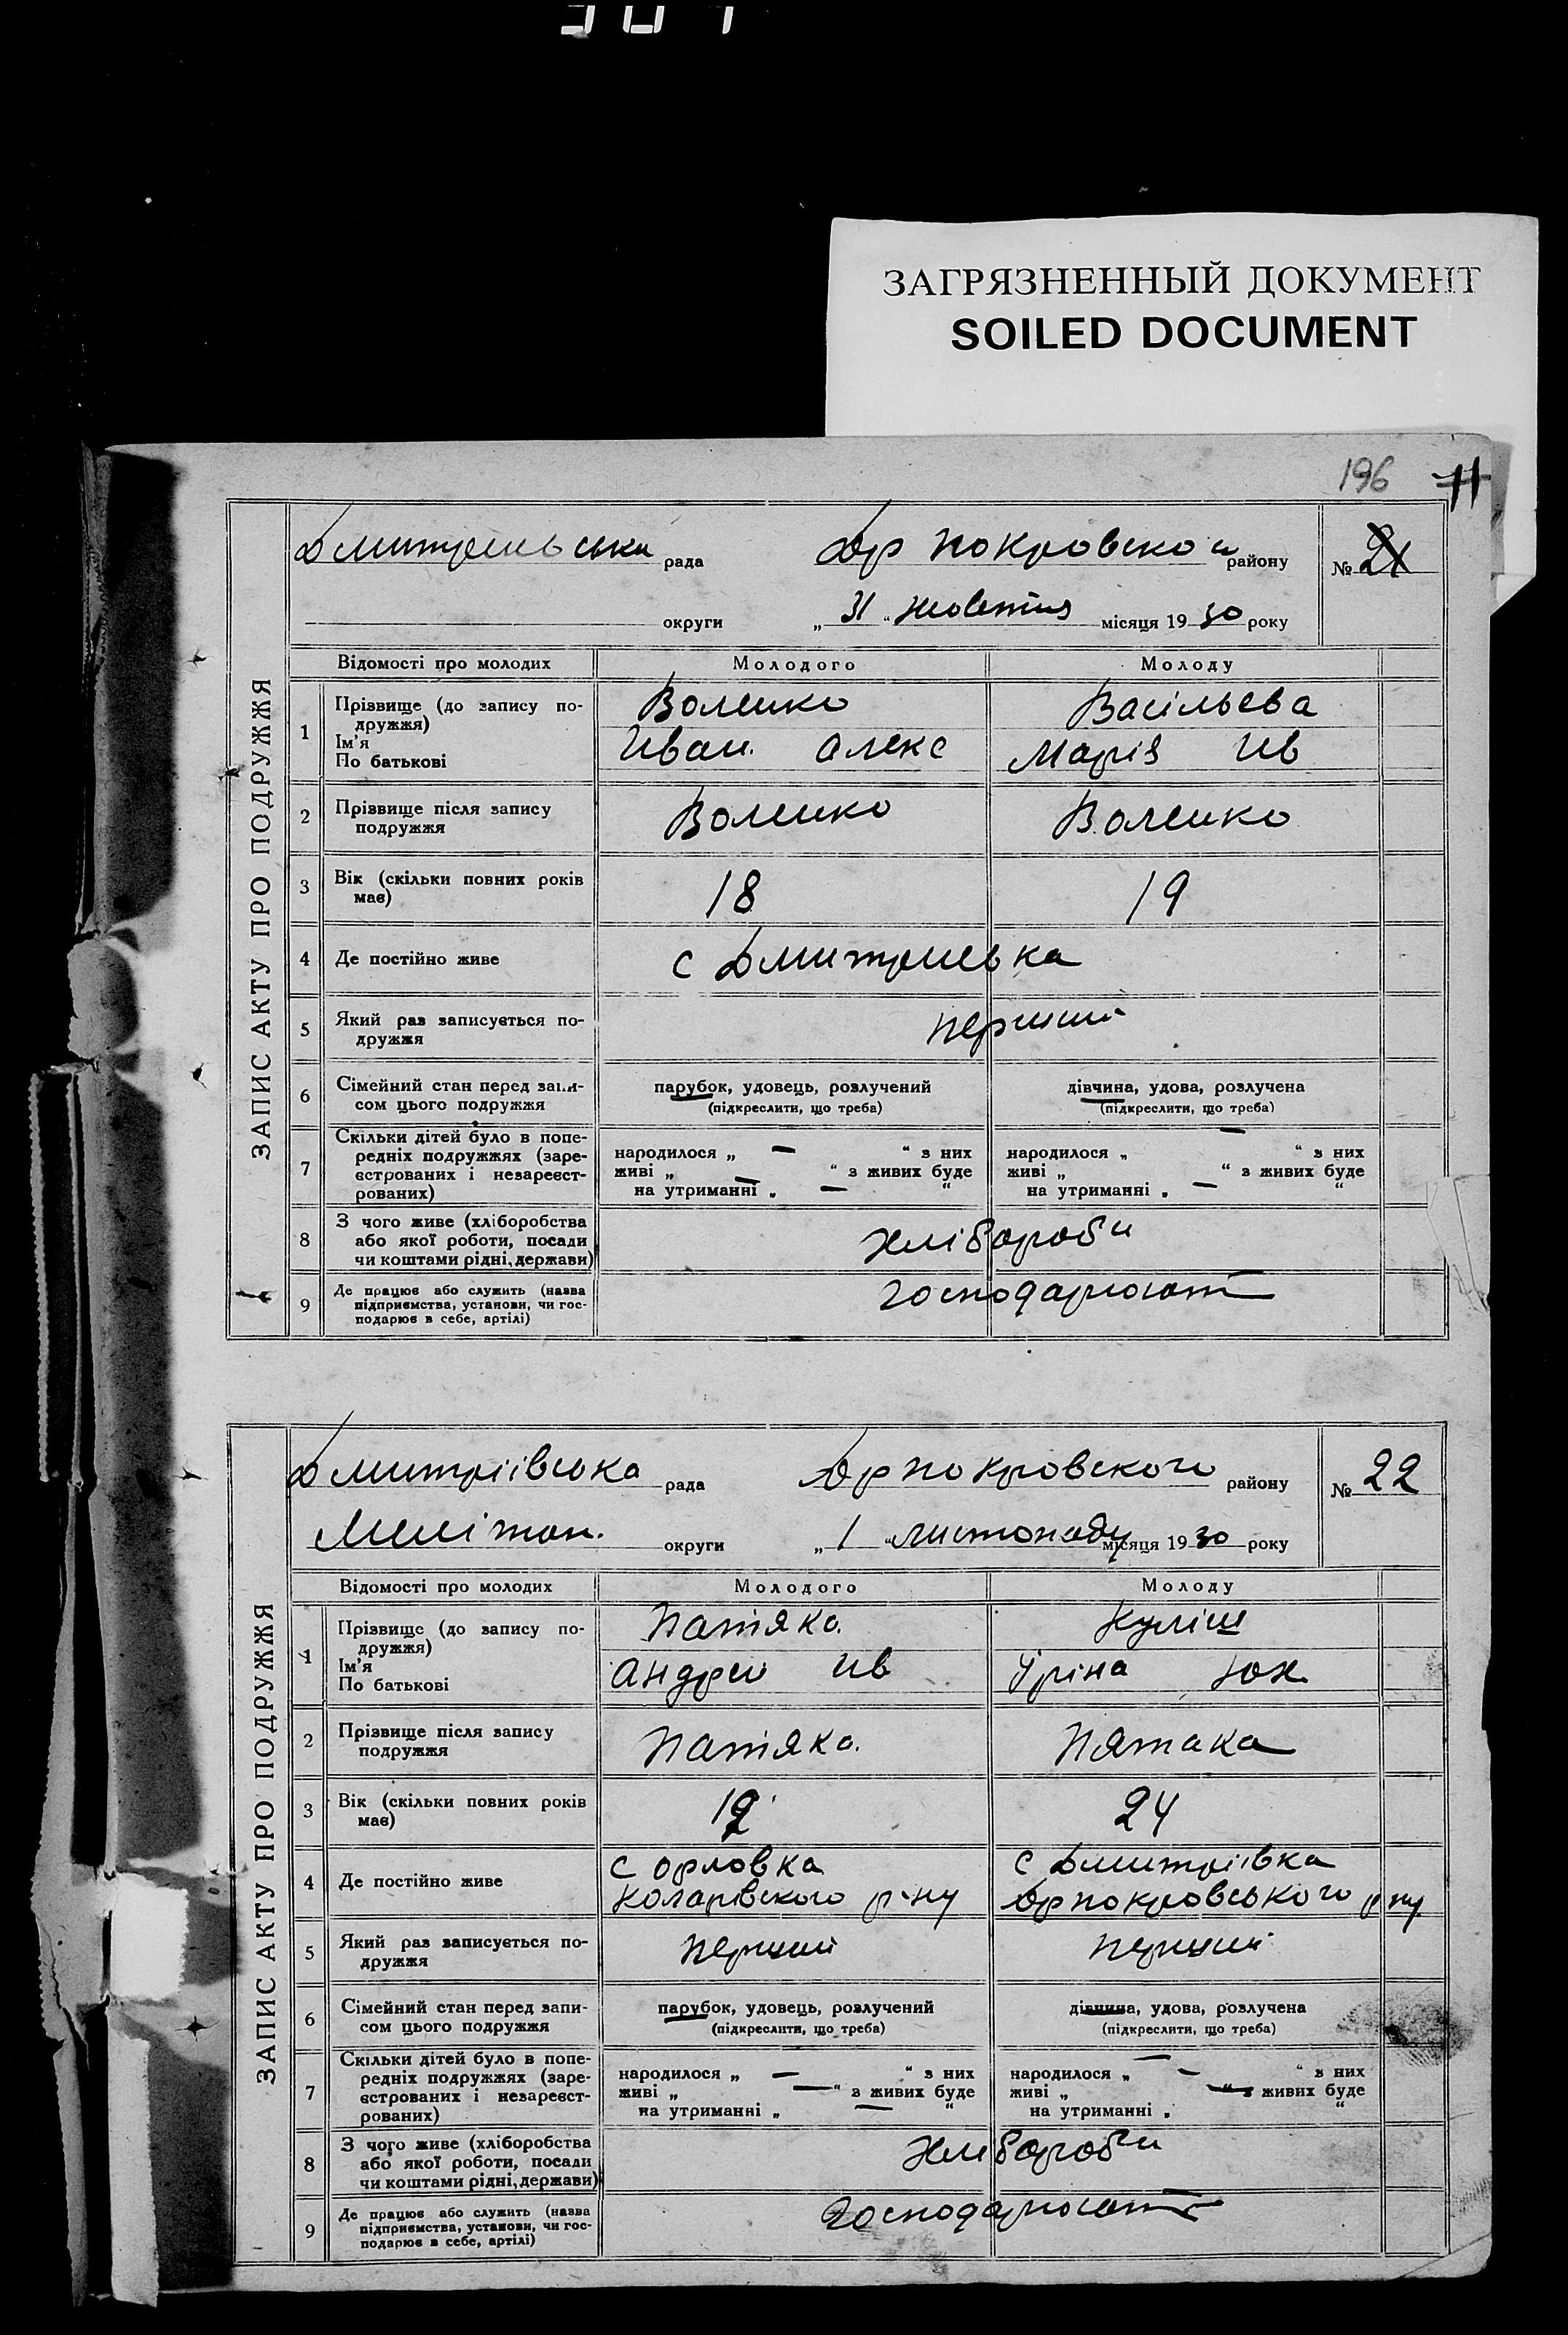 ЗАГРЯЗНЕННЫЙ ДОКУМЕНТ
SOILED DOCUMENT
196 11
ЗАПИС АКТУ ПРО ПОДРУЖЖЯ
рада Др Покровско району № 21
округи „31“ жовтня місяця 1930 року
Відомості про молодих Молодого Молоду
1 Прізвище (до запису по-
дружжя)
Ім’я
По батькові
Воленко Васільєва
Иван. Алекс Марія Ив
2 Прізвище після запису
подружжя
Воленко Воленко
3 Вік (скільки повних років
має)
18 19
4 Де постійно живе с Дмитриевка
5 Який раз записується по-
дружжя
перший
6 Сімейний стан перед запи-
сом цього подружжя
парубок, удовець, розлучений дівчина, удова, розлучена
(підкреслити, що треба) (підкреслити, що треба)
7 Скільки дітей було в попе-
редніх подружжях (заре-
єстрованих і незареєст-
рованих)
народилося „ — “ з них народилося „ — “ з них
живі „ — “ з живих буде живі „ “ з живих буде
на утриманні „ — “ на утриманні „ — “
8 З чого живе (хліборобства
або якої роботи, посади
чи коштами рідні, держави)
хлібороби
9 Де працює або служить (назва
підприємства, установи, чи гос-
подарює в себе, артілі)
господарюют
ЗАПИС АКТУ ПРО ПОДРУЖЖЯ
Дмитріівська рада Др Покровского району № 22
Меліт округи „1“ листопаду місяця 1930 року
Відомості про молодих Молодого Молоду
1 Прізвище (до запису по-
дружжя)
Ім’я
По батькові
Патяка Куліш
Андрей Ив Іріна
2 Прізвище після запису
подружжя
Патяка Пятака
3 Вік (скільки повних років
має)
24
4 Де постійно живе
с Орловка с Дмитріівка
Коларівского р-ну Др Покровського р ну
5 Який раз записується по-
дружжя
перший перший
6 Сімейний стан перед запи-
сом цього подружжя
парубок, удовець, розлучений дівчина, удова, розлучена
(підкреслити, що треба) (підкреслити, що треба)
7 Скільки дітей було в попе-
редніх подружжях (заре-
єстрованих і незареєст-
рованих)
народилося „ — “ з них народилося „ — “ з них
живі „ — “ з живих буде живі „ — “ з живих буде
на утриманні „ — “ на утриманні „ “
8 З чого живе (хліборобства
або якої роботи, посади
чи коштами рідні, держави)
хлібороби
9 Де працює або служить (назва
підприємства, установи, чи гос-
подарює в себе, артілі)
господарюют